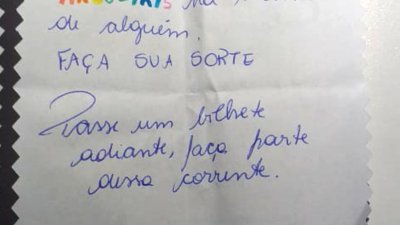 de alguém.
FAÇA SUA SORTE
Passe um bilhete
adiante, faça parte
dessa corrente.